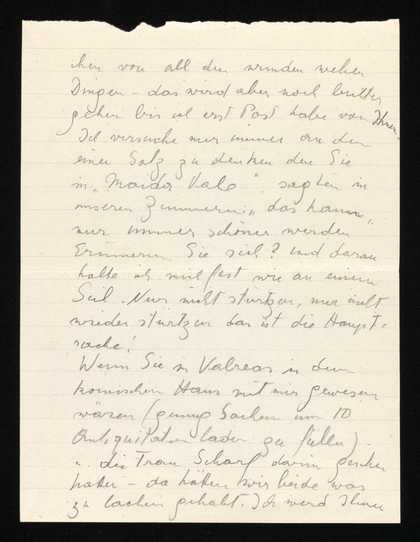 ihen von all den wunden wehen
Dingen – das wird aber noch
gehen bis ich erst Post habe von Ihnen –
Ich versuche nur immer an den
einen Satz zu denken den Sie
in „Maida Vale" sagten in
unseren Zimmern „das kann
nur immer schöner werden
Erinnern Sie sich? und daran
halte ich mich fest wie an einem
Seil. Nur nicht stürtzen, nur nicht
wieder stürtzen das ist die Haupt-
sache!
Wenn Sie in Valreas in dem
komischen Haus mit mir gewesen
wären (genug Sachen um 10
Antiquitäten laden zu füllen) –
u. die Frau Scharf darin gesehen
hätten – da hätten wir beide was
zu lachen gehabt. Ich werd Ihnen